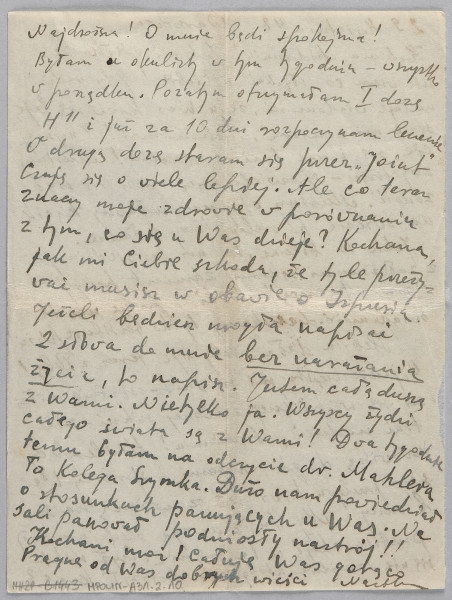 Najdroższa! O mnie bądź spokojna!
Byłam u okulisty w tym tygodniu – wszystko
w porządku. Pozatym otrzymałam I dozę
H" i już za 10 dni rozpoczynam leczenie
O drugą dozę staram się przez „Joint"
Czuję się o wiele lepiej. Ale co teraz
znaczy moje zdrowie w porównaniu
z tym, co się u Was dzieje? Kochana,
jak mi Ciebie szkoda, że tyle przeży-
wać musisz w obawie o
Jeżeli będziesz mogła napisać
2 słowa do mnie bez narażania
życia, to napisz. Jestem całą duszą
z Wami. Nietylko ja. Wszyscy żydzi
całego świata są z Wami! Dwa tygodnie
temu byłam na odczycie dr. Mahlera
To kolega Szymka. Dużo nam powiedział
o stosunkach panujących u Was. Na
sali panował podniosły nastrój!!
Kochani moi! Całuję Was gorąco
Pragnę od Was dobrych wieści
MPOLIN-A31.2.10